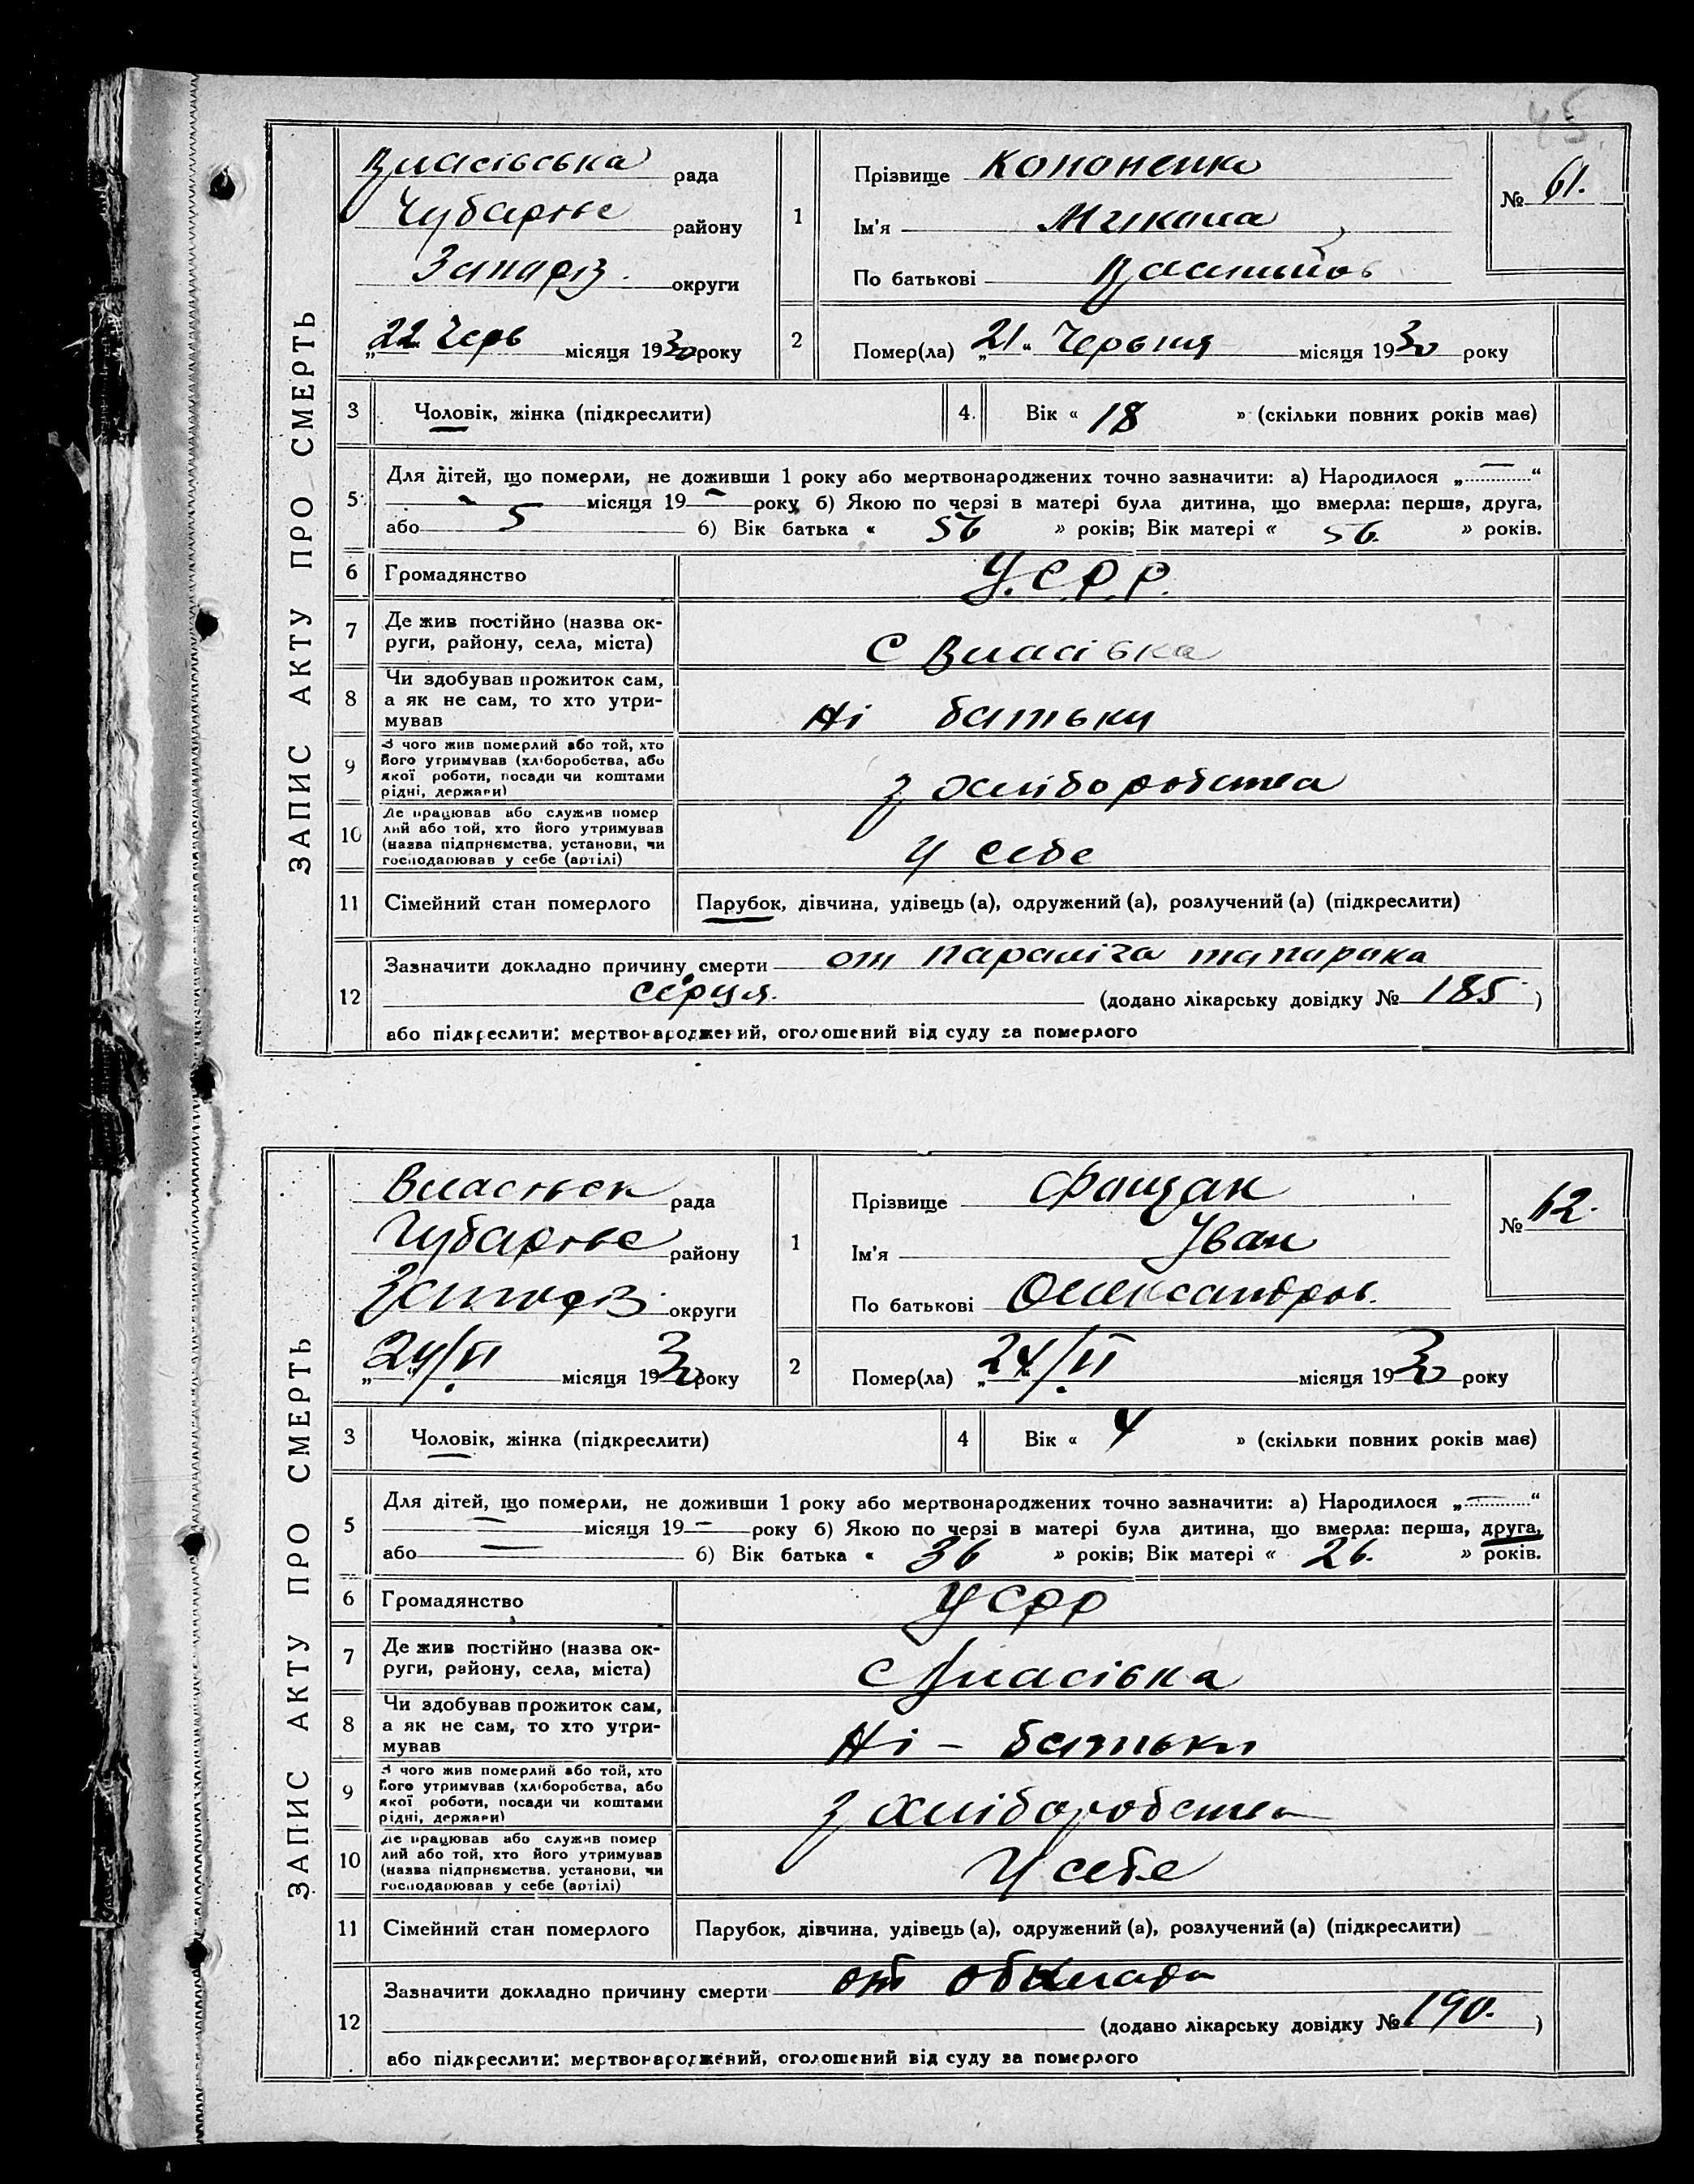 45
ЗАПИС АКТУ ПРО СМЕРТЬ
Власівська рада
Чубарівс району
Запоріз. округи
„22 Черв місяця 1930 року
1
Прізвище Кононенко
Ім'я Микола
По батькові
№ 61.
2
Помер(ла) „21“ Червня місяця 1930 року
3
Чоловік, жінка (підкреслити)
4.
Вік « 18 » (скільки повних років має)
5
Для дітей, що померли, не доживши 1 року або мертвонароджених точно зазначити: а) Народилося „—“
— місяця 19 — року б) Якою по черзі в матері була дитина, що вмерла: перша, друга,
або 5 б) Вік батька « 56 » років; Вік матері « 56. » років.
6
Громадянство У.С.Р.Р.
7
Де жив постійно (назва ок-
руги, району, села, міста) С Власівка
8
Чи здобував прожиток сам,
а як не сам, то хто утри-
мував Ні батьки
9
З чого жив померлий або той, хто
його утримував (хліборобства, або
якої роботи, посади чи коштами
рідні, держави) з хліборобства
10
Де працював або служив помер
лий або той, хто його утримував
(назва підприємства, установи, чи
господарював у себе (артілі) у себе
11
Сімейний стан померлого Парубок, дівчина, удівець (а), одружений (а), розлучений (а) (підкреслити)
12
Зазначити докладно причину смерти от параліча та порока
серця. (додано лікарську довідку № 185 )
або підкреслити: мертвонароджений, оголошений від суду за померлого
ЗАПИС АКТУ ПРО СМЕРТЬ
Власівск рада
Чубарівс району
Запоріз. округи
„24/VI місяця 1930 року
1
Прізвище Фащак
Ім'я Іван
По батькові Олександров.
№ 62.
2
Помер(ла) „24/VI місяця 1930 року
3
Чоловік, жінка (підкреслити)
4
Вік « 4 » (скільки повних років має)
5
Для дітей, що померли, не доживши 1 року або мертвонароджених точно зазначити: а) Народилося „—“
— місяця 19 — року б) Якою по черзі в матері була дитина, що вмерла: перша, друга,
або — б) Вік батька « 36 » років; Вік матері « 26. » років.
6
Громадянство УСРР
7
Де жив постійно (назва ок-
руги, району, села, міста) с Власівка
8
Чи здобував прожиток сам,
а як не сам, то хто утри-
мував Ні – батьки
9
З чого жив померлий або той, хто
його утримував (хліборобства, або
якої роботи, посади чи коштами
рідні, держави) з хліборобства
10
Де працював або служив помер
лий або той, хто його утримував
(назва підприємства, установи, чи
господарював у себе (артілі) У себе
11
Сімейний стан померлого Парубок, дівчина, удівець (а), одружений (а), розлучений (а) (підкреслити)
12
Зазначити докладно причину смерти от
(додано лікарську довідку № 190. )
або підкреслити: мертвонароджений, оголошений від суду за померлого